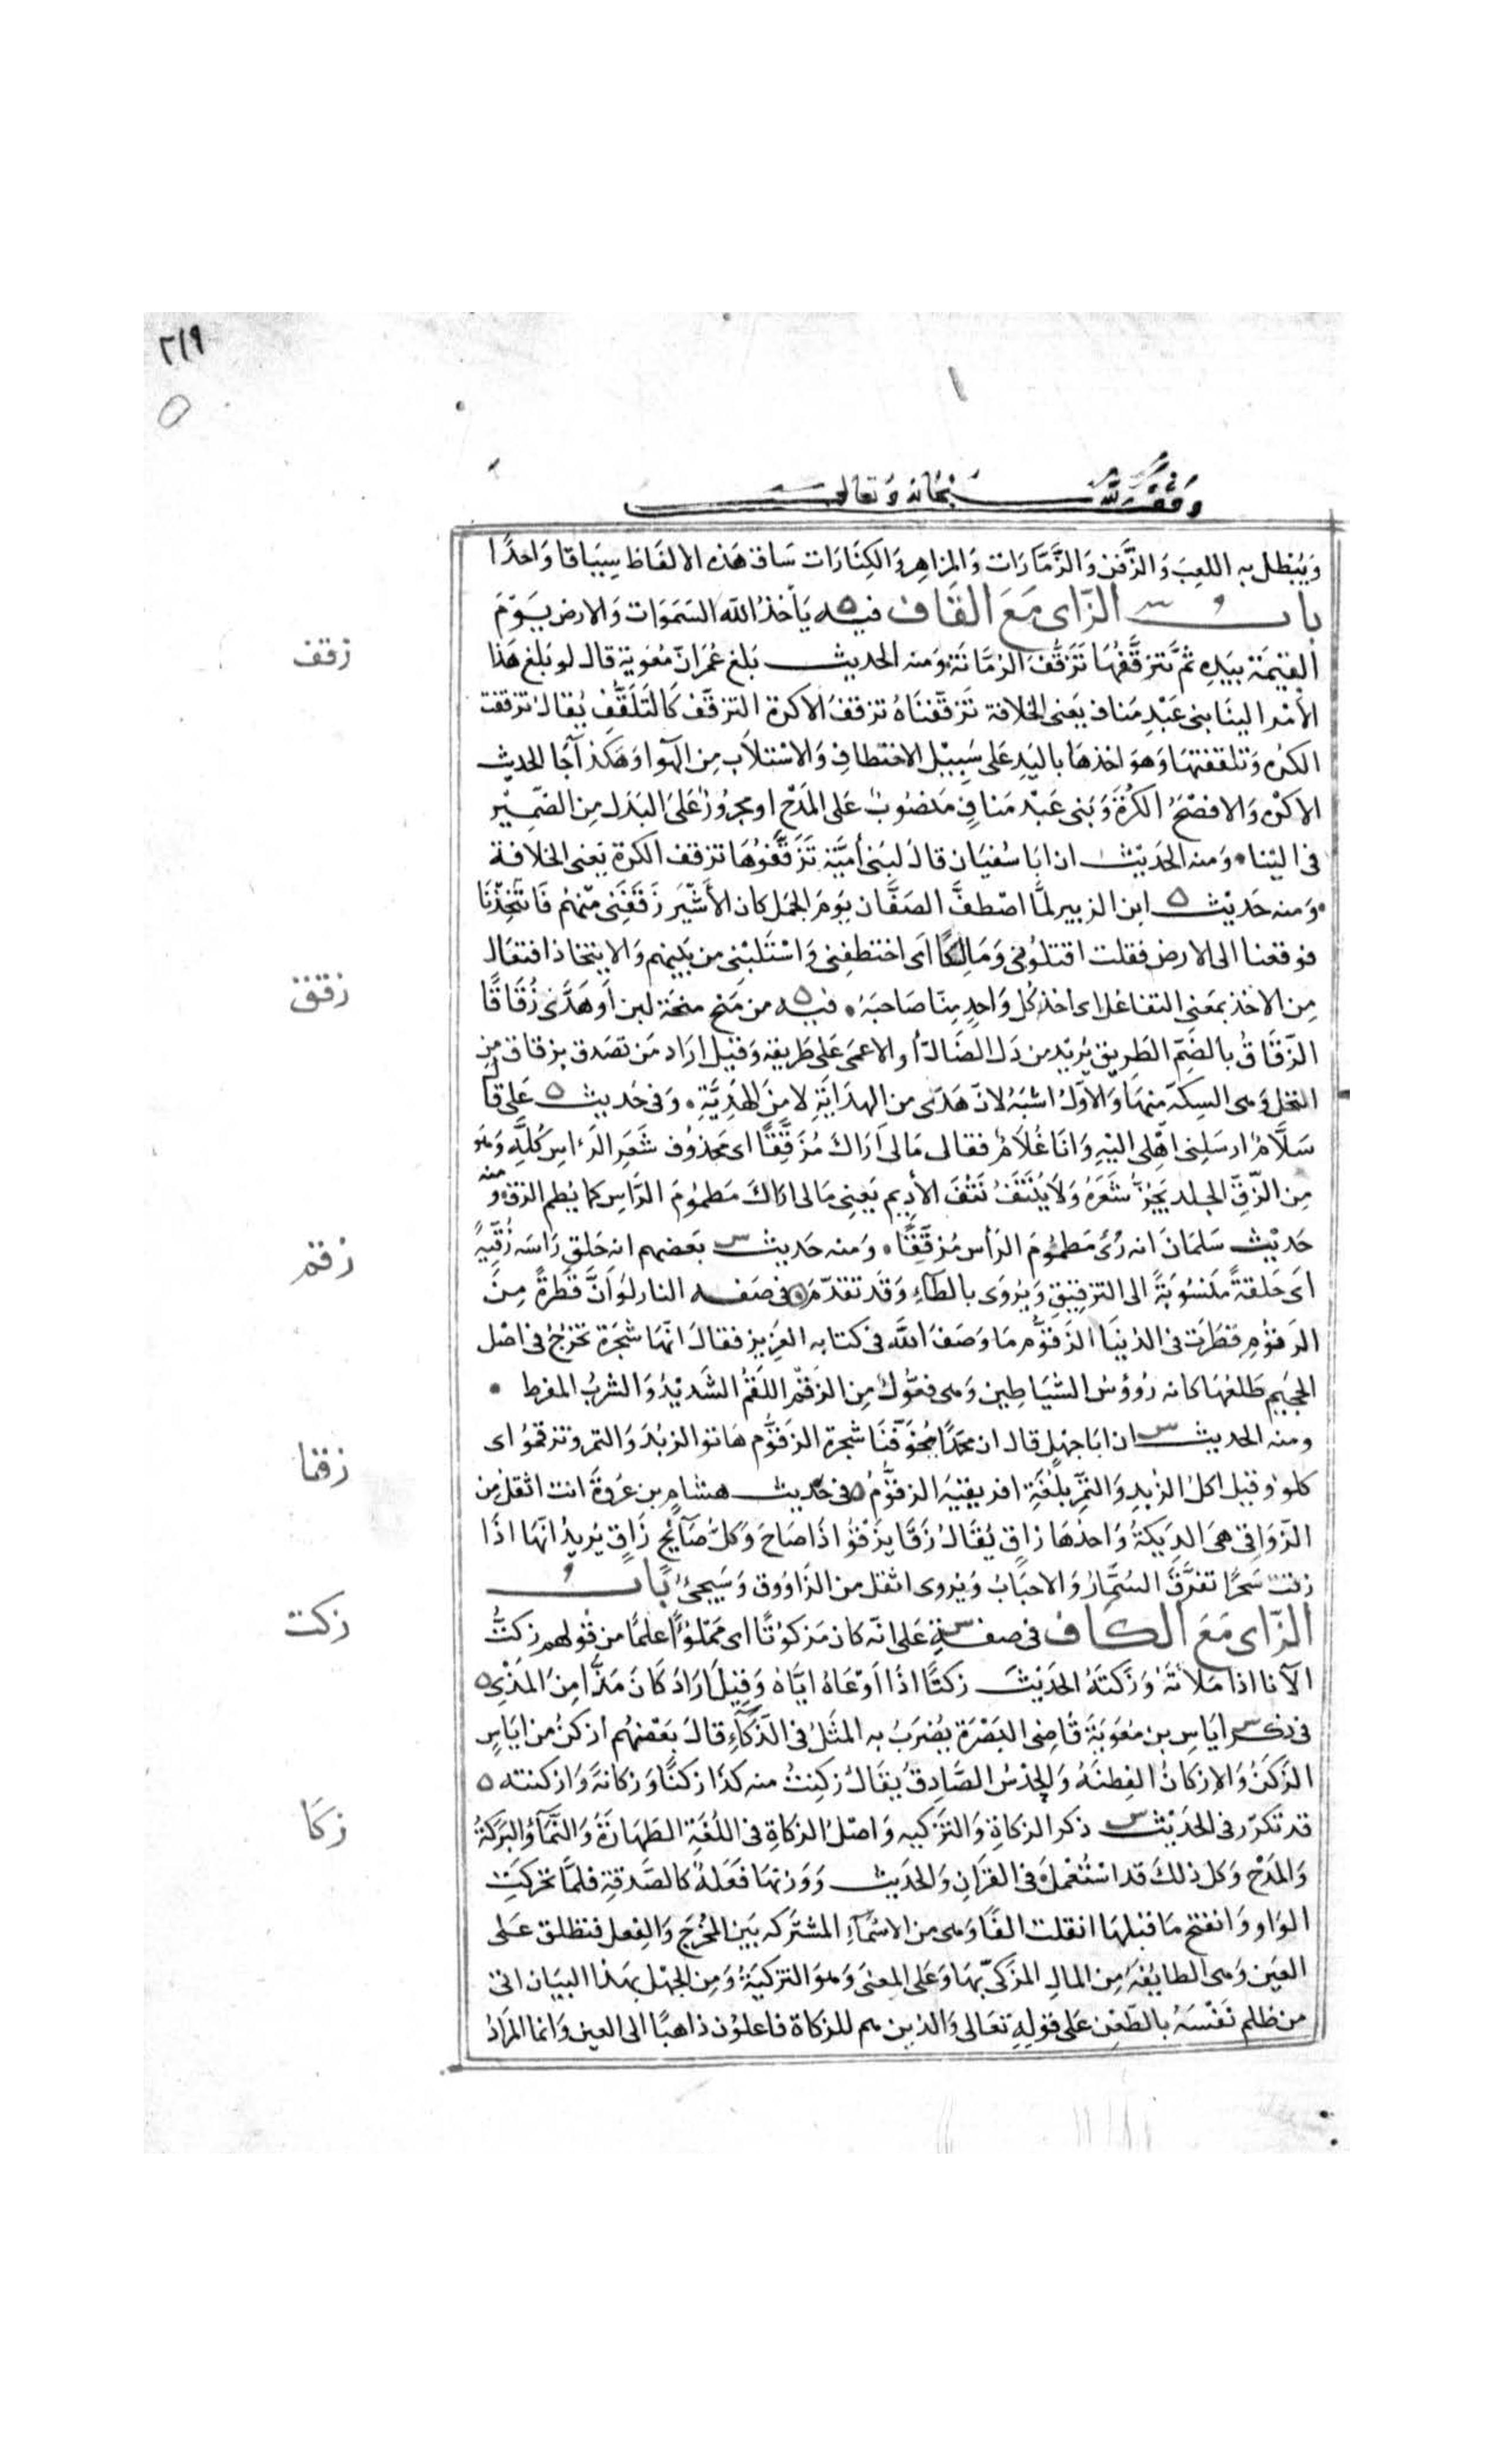 ٢١٩
وقف لله سبحانه وتعالى
وَيُبْطِل به اللعِبَ وَالزَّفنَ وَالزَّمَّارَات وَالمزاهِر وَالكِنَّارَات سَاق هَذه الالفَاظ سِيَاقا وَاحدًا
باب الزاى مَعَ القاف فيه يَأخذ الله السَّمَوَات وَالارض يَوْمَ
القيٰمَة بيَدِه ثُمَّ يَتزقَّفُهَا تَزَقُّفَ الرُّمَّانَة وَمنه الحديث بَلغ عُمَرَ انّ مُعٰوية قال لو بَلغ هَذا
الأمْر الينَا بنى عَبْدِ مَناف يَعنى الخلافة تَزقّفنَاهُ تزقفَ الاكرة التزقّف كَالتَلَقُّفِ يُقال تزقفت
الكرُه وَتلقفتهَا وَهوَ اخذهَا باليَدِ عَلى سَبِيْل الاختطافِ وَالاسْتلاَب مِن الهَوا وَهَكذا جَا الحديث
الاكره وَالافصَحُ الكُرَة وَبَنى عَبْد مَنافٍ مَنصُوبٌ عَلى المَدْح او مجرُورٌ عَلى البَدَل مِن الضّمِيْر
فى الينا وَمنه الحَدِيث ان ابَا سُفيَان قالَ لبَنى أميَّة تَزَقَّفُوهَا تزقف الكرة يَعنى الخلافة
وَمنه حَديث ابن الزبير لمَّا اصْطفَّ الصَفَّان يَومَ الجَمَل كان الأشْتَر زَقَفَنى مِّنهُم فَائتَخَذْنَا
فوقعنا الى الارض فقلت اقتلونى وَمَالِكًا اى اختطفِنى وَاسْتَلَبْنى من بَينهم وَالايتخاذ افتعَال
مِن الاخذ بمَعنى التفاعُل اى اخذ كُل وَاحدٍ مِنّا صَاحبَهُ فيه من مَنح منحة لبن أو هَدَى زُقَاقًا
الزّقَاقُ بالضَّمّ الطَرِيق يُرِيْد من دَل الضَالّ أو الاعمَى عَلى طَريقه وَقيل ارَاد مَن تصَدق بزقاق من
النخل وَهى السِكّة منهَا وَالاوّل اشبَهُ لانّ هَدَى من الهدَايَةِ لا مِنَ الهَدِيَّةِ وَفى حَديث عَلى قا
سَلاَّمٌ ارْسَلنى اهْلى اليْهِ وَانَا غُلاَمٌ فقال مَالى اَرَاكَ مُزَقَّقًا اى مَحذُوف شَعَرِ الرَأسِ كُلِّه وَهو
مِن الزِّقِّ الجلد يُجَزُّ شَعَرُهُ وَلاَ يُنْتَفُ نَتْفَ الأدِيم يَعنِى مَالى اراكَ مَطمُومَ الرَّاسِ كما يُطم الزق ومنه
حَدِيْث سَلمَانَ انه رُئَ مَطمُومَ الرَأس مُزقّقًا وَمنه حَديث بَعضهم انه حَلقَ رَاسَه زُقّيةً
اَى حَلقةً مَنسُوبَةً الى التزقِيقِ وَيُرْوَى بالطَاء وَقَد تقَدّمَ فى صَفه النار لَوْ اَنَّ قَطرَةً مِنَ
الزقُّومِ قطَرَت فى الدُنيَا الزَقُّومُ مَا وَصَفَ اللَّه فى كتابه العَزِيز فقالَ انّهَا شَجرَة تخرُجُ فى اصْل
الجحِيم طَلعُهَا كانه رُؤُسُ الشَّيَاطِين وَهى فعُّولٌ مِن الزقّم اللَقْم الشَديْد وَالشرب المفرط
ومنه الحديث ان ابَا جهْل قال ان محَمّدًا يُخوّفنَا شجرة الزقُّوم هَاتوا الزبْدَ وَالتمر وتزقمُوا اى
كلوا وَقيل اكل الزُبدِ وَالتَّمرِ بلُغَةِ افريقيَهَ الزقُّومُ فى حَديث هِشام بن عُروَة انتَ اثقل من
الزّوَاقى هىَ الدِيَكةُ وَاحدُهَا زاقٍ يُقَالُ زَقَا يَزْقُو اذَا صَاحَ وَكلُّ صَائِحٍ زَاقٍ يُرِيدُ انّهَا اذَا
زقت سَحَرًا تفَرَّقَ السُّمَّارُ وَالاحبَابُ وَيُروى اثقل من الزَاوُوق وَسَيجئُ بَابُ
الزّاى مَعَ الكاف فى صفة عَلى انّه كان مَزكوتًا اى مَمْلُوءًا علمًا من قولهم زكتُّ
الآنا اذا مَلأتَهُ وَزَكَتَهُ الحَدِيْثَ زَكتًا اذَا اَوْعَاهُ ايَّاهُ وَقيلَ اَرَادَ كَانَ مَذَّا مِنَ المَذْىِ
فى ذكر ايَاس بن مُعٰوِيَةَ قَاضِى البَصْرَة يُضرَبُ به المَثَلُ فى الذَكاءِ قالَ بَعْضهُم أزكنُ من ايَاسٍ
الزَكَنُ وَالازكانُ الفِطنَهُ وَالحَدْسُ الصَّادِقُ يُقَالُ زَكِنتُ منه كذَا زكنًا وَزكانةً وَازكنته
قد تكرّر فى الحَديْث ذكر الزكاةِ وَالتزكيه وَاصْلُ الزكَاةِ فى اللُغَة الطهَارَةُ وَالنَّمَآءُ وَالبَرَكةُ
وَالمَدْح وَكل ذلكَ قد اسْتُعْملَ فى القرَانِ وَالحَديث وَوَزنهَا فَعَلةٌ كالصَّدقةِ فلمَّا تحَرّكَتِ
الوَاو وَانفتح مَا قبلهَا انقلت الفًا وَهى من الاسْمَآءِ المشتَركه بَين المُخرَج وَالفِعل فتطلق عَلى
العَين وَهى الطايفَه مِن المالِ المزَكىّ بهَا وَعَلى المعنىَ وَهوَ التزكيَةُ وَمِن الجَهْل بهَذا البيَان اتى
من ظلم نَفْسَهُ بالطّعْن عَلى قوْلِهِ تعَالى وَالذين هم للزكاة فاعلوُن ذاهبًا الى العين وَانما المُرَادُ
زقف
زقق
زقم
زقا
زكت
زكا